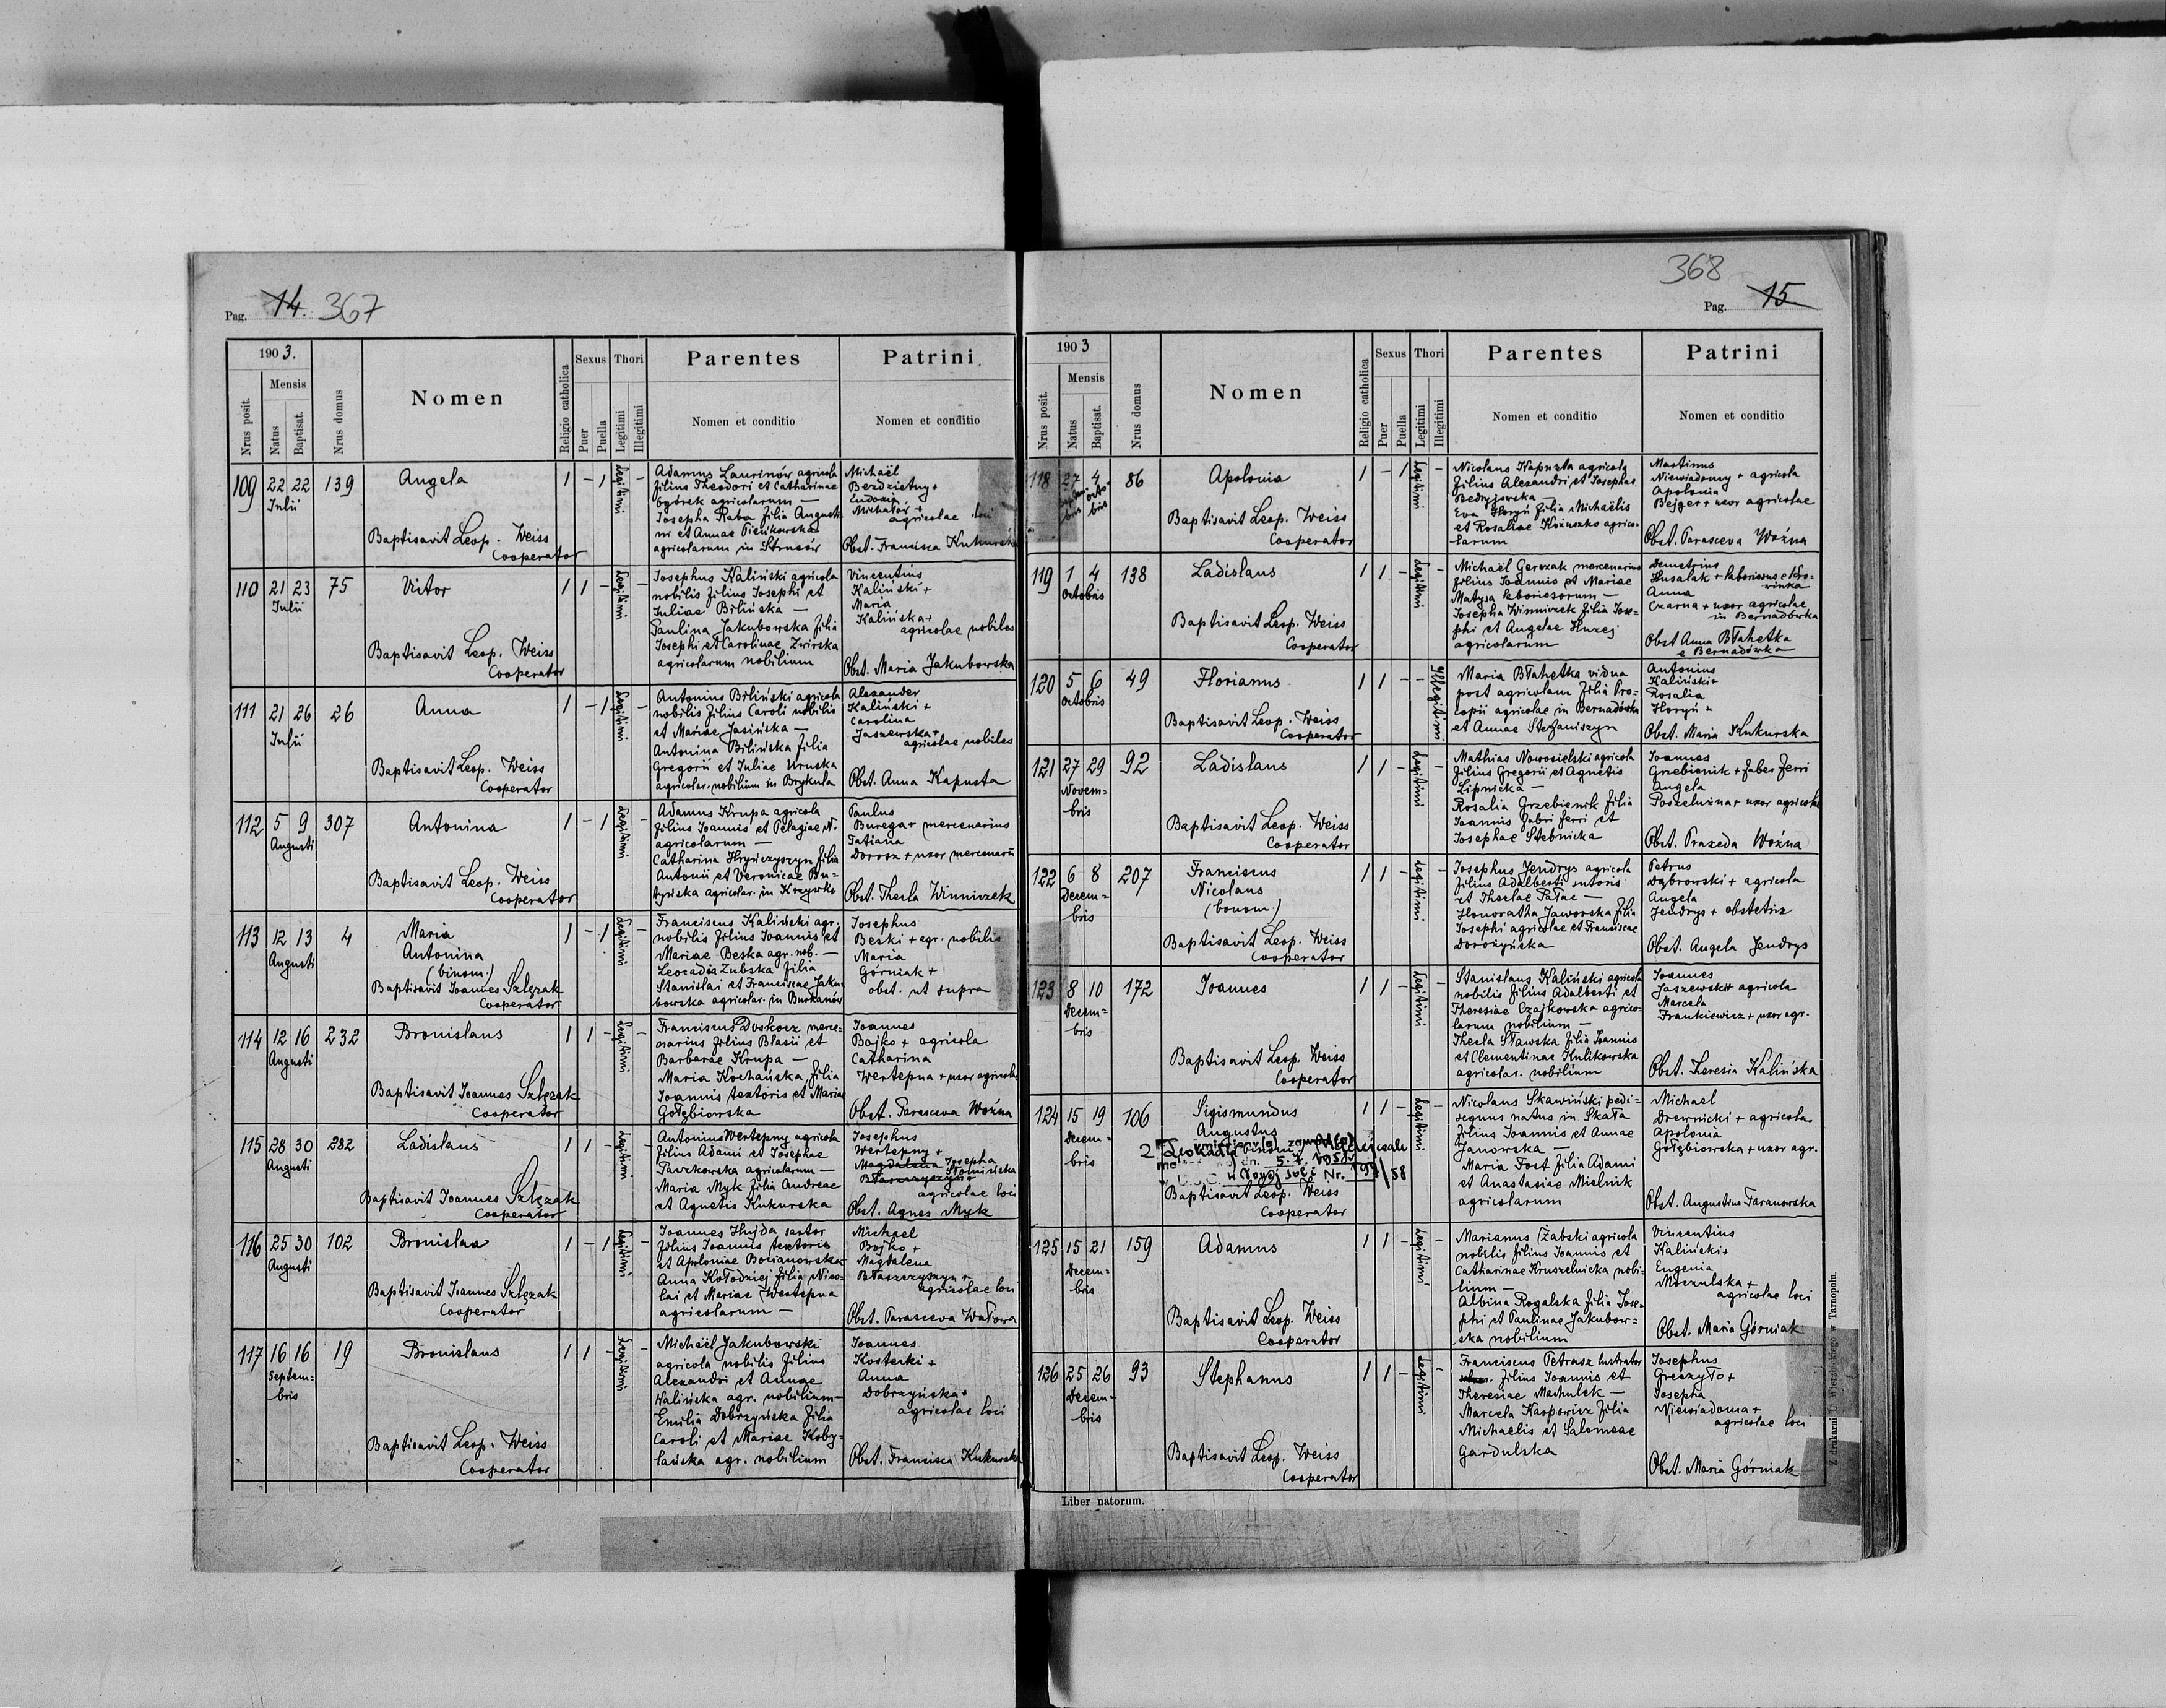 Pag. 14. 367
1903.
Nrus posit.
Mensis
Natus
Baptisat.
Nrus domus
Nomen
Religio catholica
Sexus
Puer
Puella
Thori
Legitimi
Illegitimi
Parentes
Nomen et conditio
Patrini
Nomen et conditio
109 22 22 139 Angela 1 - 1 Legitimi -
Julii
Baptisavit Leop. Weiss
Cooperator
Adamus Laurinów agricola
filius Theodori et Catharinae
Ogórek agricolarum —
Josepha Raba filia Augusti-
ni et Annae Pieńkowska
agricolarum in Strusów
Michaël
Bezdzietny +
Eudoxia
agricolae loci
Obst. Francisca Kukurska
110 21 23 75 Victor 1 1 - Legitimi -
Julii
Baptisavit Leop. Weiss
Cooperator
Josephus Kaliński agricola
nobilis filius Josephi et
Juliae Bilińska —
Paulina Jakubowska filia
Josephi et Carolinae Zwirska
agricolarum nobilium
Vincentius
Kaliński +
Maria
Kalińska +
agricolae nobiles
Obst. Maria Jakubowska
111 21 26 26 Anna 1 - 1 Legitimi -
Julii
Baptisavit Leop. Weiss
Cooperator
Antonius Biliński agricola
nobilis filius Caroli nobilis
et Mariae Jasińska —
Antonina Bilińska filia
Gregorii et Juliae Uruska
agricolar. nobilium in Brykula
Alexander
Kaliński +
Carolina
Jaszewska +
agricolae nobiles
Obst. Anna Kapusta
112 5 9 307 Antonina 1 - 1 Legitimi -
Augusti
Baptisavit Leop. Weiss
Cooperator
Adamus Krupa agricola
filius Joannis et Pelagiae N.
agricolarum —
Catharina Hryńczyszyn filia
Antonii et Veronicae Bu-
tyńska agricolar. in Krzywki
Paulus
Burega + mercenarius
Tatiana
Dorosz + uxor mercenarii
Obst. Thecla Winniczek
113 12 13 4 Maria 1 - 1 Legitimi -
Augusti
Antonina
(binom.)
Baptisavit Joannes Szlęzak
Cooperator
Franciscus Kaliński agr.
nobilis filius Joannis et
Mariae Beska agr. nob. —
Leocadia Zubska filia
Stanislai et Franciscae Jaku-
bowska agricolar. in Burkanów
Josephus
Beski + agr. nobilis
Maria
Górniak +
obst. ut supra
114 12 16 232 Bronislaus 1 1 - Legitimi -
Augusti
Baptisavit Joannes Szlęzak
Cooperator
Franciscus Doskocz merce-
narius filius Blasii et
Barbarae Krupa —
Maria Kochańska filia
Joannis textoris et Mariae
Gołębiowska
Joannes
Bojko + agricola
Catharina
Wertepna + uxor agricolae
Obst. Parasceva Woźna
115 28 30 282 Ladislaus 1 1 - Legitimi -
Augusti
Baptisavit Joannes Szlęzak
Cooperator
Antonius Wertepny agricola
filius Adami et Josephae
Paczkowska agricolarum —
Maria Myk filia Andreae
et Agnetis Kukurska
Josephus
Wertepny +
Magdalena Josepha
Błaszczyszyn + Słomińska
agricolae loci
Obst. Agnes Myk
116 25 30 102 Bronislaa 1 - 1 Legitimi -
Augusti
Baptisavit Joannes Szlęzak
Cooperator
Joannes Hujda sartor
filius Joannis textoris
et Apoloniae Bocianowska
Anna Kołodziej filia Nico-
lai et Mariae Wertepna
agricolarum —
Michael
Bojko +
Magdalena
Błaszczyszyn +
agricolae loci
Obst. Parasceva Wałowa
117 16 16 19 Bronislaus 1 1 - Legitimi -
Septem-
bris
Baptisavit Leop. Weiss
Cooperator
Michaël Jakubowski
agricola nobilis filius
Alexandri et Annae
Kalińska agr. nobilium —
Emilia Dobrzyńska filia
Caroli et Mariae Koby-
lańska agr. nobilium
Joannes
Kostecki +
Anna
Dobrzyńska +
agricolae loci
Obst. Francisca Kukurska
368
Pag. 15.
1903
Nrus posit.
Mensis
Natus
Baptisat.
Nrus domus
Nomen
Religio catholica
Sexus
Puer
Puella
Thori
Legitimi
Illegitimi
Parentes
Nomen et conditio
Patrini
Nomen et conditio
118 27 4 86 Apolonia 1 - 1 Legitimi -
Octo-
bris
Baptisavit Leop. Weiss
Cooperator
Nicolaus Kapusta agricola
filius Alexandri et Josephae
Fedryjowska —
Eva Horyń filia Michaëlis
et Rosaliae Kożuszko agrico-
larum
Martinus
Niewiadomy + agricola
Apolonia
Bejger + uxor agricolae
Obst. Parasceva Woźna
119 1 4 138 Ladislaus 1 1 - Legitimi -
Octobris
Baptisavit Leop. Weiss
Cooperator
Michaël Gerczak mercenarius
filius Joannis et Mariae
Matysa laboriosorum —
Josepha Winniczek filia Jose-
phi et Angelae Huzej
agricolarum
Demetrius
Husalak + laboriosus e
Anna
Czarna + uxor agricolae
in Bernadówka
Obst Anna Błahetka
e Bernadówka
120 5 6 49 Florianus 1 1 - - Illegitimi
Octobris
Baptisavit Leop. Weiss
Cooperator
Maria Błahetka vidua
post agricolam filia Pro-
copii agricolae in Bernadówka
et Annae Stefaniszyn
Antonius
Kaliński +
Rosalia
Horyń "
Obst. Maria Kukurska
121 27 29 92 Ladislaus 1 1 - Legitimi -
Novem-
bris
Baptisavit Leop. Weiss
Cooperator
Mathias Nowosielski agricola
filius Gregorii et Agnetis
Lipnicka —
Rosalia Grzebienik filia
Joannis fabri ferri et
Josephae Stebnicka
Joannes
Grzebienik + faber ferri
Angela
Poszeluzna + uxor agricolae
Obst. Praxeda Woźna
122 6 8 207 Franciscus 1 1 - Legitimi -
Decem-
bris
Nicolaus
(binom.)
Baptisavit Leop. Weiss
Cooperator
Josephus Jendrys agricola
filius Adalberti sutoris
et Theclae Pałac —
Honoratha Jaworska filia
Josephi agricolae et Franciscae
Dorożyńska
Petrus
Dąbrowski + agricola
Angela
Jendrys + obstetrix
Obst. Angela Jendrys
123 8 10 172 Joannes 1 1 - Legitimi -
Decem-
bris
Baptisavit Leop. Weiss
Cooperator
Stanislaus Kaliński agricola
nobilis filius Adalberti et
Theresiae Czajkowska agrico-
larum nobilium —
Thecla Sławska filia Joannis
et Clementinae Kulikowska
agricolar. nobilium
Joannes
Jaszewski + agricola
Marcela
Frankiewicz + uxor agr.
Obst. Theresia Kalińska
124 15 19 106 Sigismundus 1 1 - Legitimi -
Decem-
bris
Augustus
5.7.1958
Nr. 194/58
Baptisavit Leop. Weiss
Cooperator
Nicolaus Skawiński pedi-
sequus natus in Skała
filius Joannis et Annae
Janowska —
Maria Fost filia Adami
et Anastasiae Mielnik
agricolarum
Michael
Drewnicki + agricola
Apolonia
Gołębiowska + uxor agr.
Obst. Augustina Taranowska
125 15 21 159 Adamus 1 1 - Legitimi -
Decem-
bris
Baptisavit Leop. Weiss
Cooperator
Marianus Żabski agricola
nobilis filius Joannis et
Catharinae Kruszelnicka nobi-
lium —
Albina Rogalska filia Jose-
phi et Paulinae Jakubow-
ska nobilium
Vincentius
Kaliński +
Eugenia
Moczulska +
agricolae loci
Obst. Maria Górniak
126 25 26 93 Stephanus 1 1 - Legitimi -
Decem-
bris
Baptisavit Leop. Weiss
Cooperator
Franciscus Petrasz lustrator
filius Joannis et
Theresiae Machulek —
Marcela Kasporwicz filia
Michaelis et Salomeae
Gardulska
Josephus
Greszyło +
Josepha
Niewiadoma +
agricolae loci
Obst. Maria Górniak
Liber natorum.
Z drukarni L. Wierzbickiego w Tarnopolu.